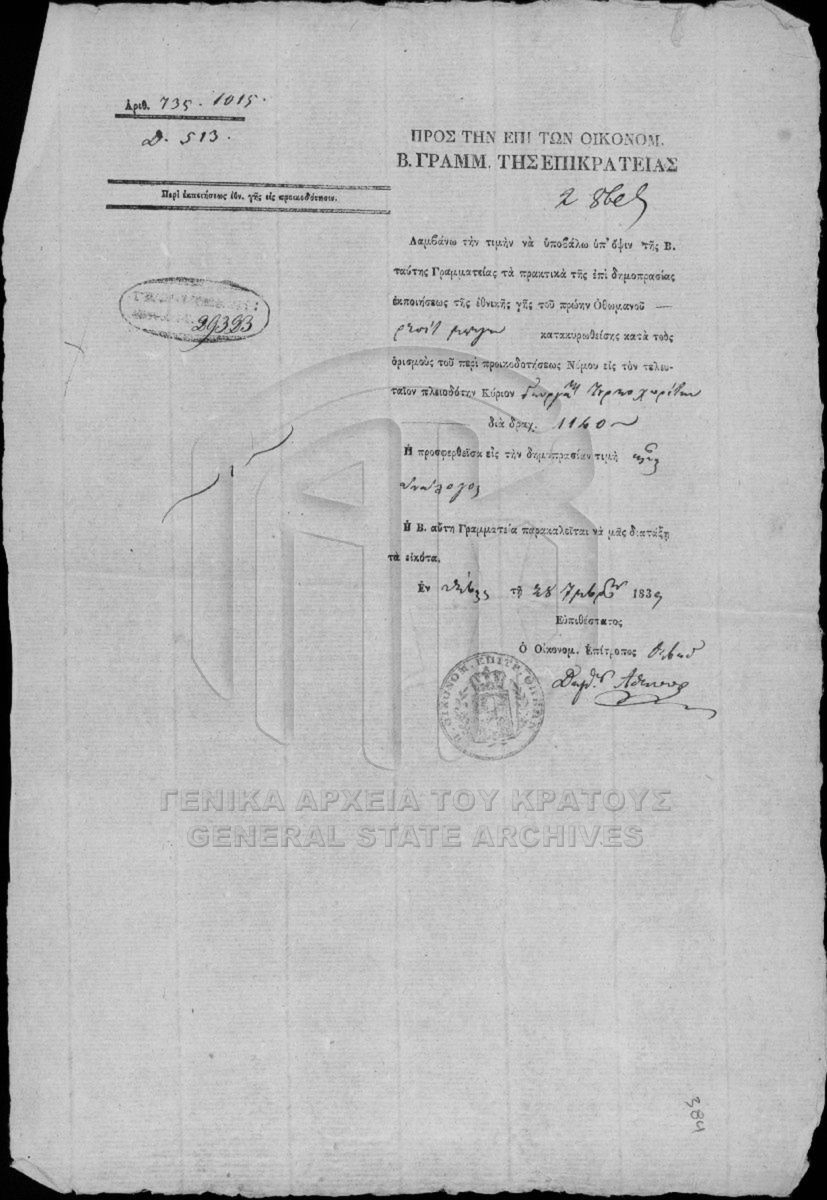 Ἀριθ. 735. 1015.
Δ. 513.
ΠΡΟΣ ΤΗΝ ΕΠΙ ΤΩΝ ΟΙΚΟΝΟΜ.
Β. ΓΡΑΜΜ. ΤΗΣ ΕΠΙΚΡΑΤΕΙΑΣ
Περὶ ἐκποιήσεως ἐθν. γῆς εἰς προικοδότησιν.
2
Λαμβάνω τὴν τιμὴν νὰ ὑποβάλω ὑπ' ὄψιν τῆς Β.
ταύτης Γραμματείας τὰ πρακτικὰ τῆς ἐπὶ δημοπρασίας
ἐκποιήσεως τῆς ἐθνικῆς γῆς τοῦ πρώην Ὀθωμανοῦ
29323
κατακυρωθείσης κατὰ τοὺς
ὁρισμοὺς τοῦ περὶ προικοδοτήσεως Νόμου εἰς τὸν τελευ-
ταῖον πλειοδότην Κύριον
διὰ δραχ. 1160
Ἡ προσφερθεῖσα εἰς τὴν δημοπρασίαν τιμὴ
ἀνάλογος
Ἡ Β. αὕτη Γραμματεία παρακαλεῖται νὰ μᾶς διατάξῃ
τὰ εἰκότα.
Ἐν τῇ 28 183
Εὐπιθέστατος
Ὁ Οἰκονομ. Ἐπίτροπος
ΓΕΝΙΚΑ ΑΡΧΕΙΑ ΤΟΥ ΚΡΑΤΟΥΣ
GENERAL STATE ARCHIVES
384